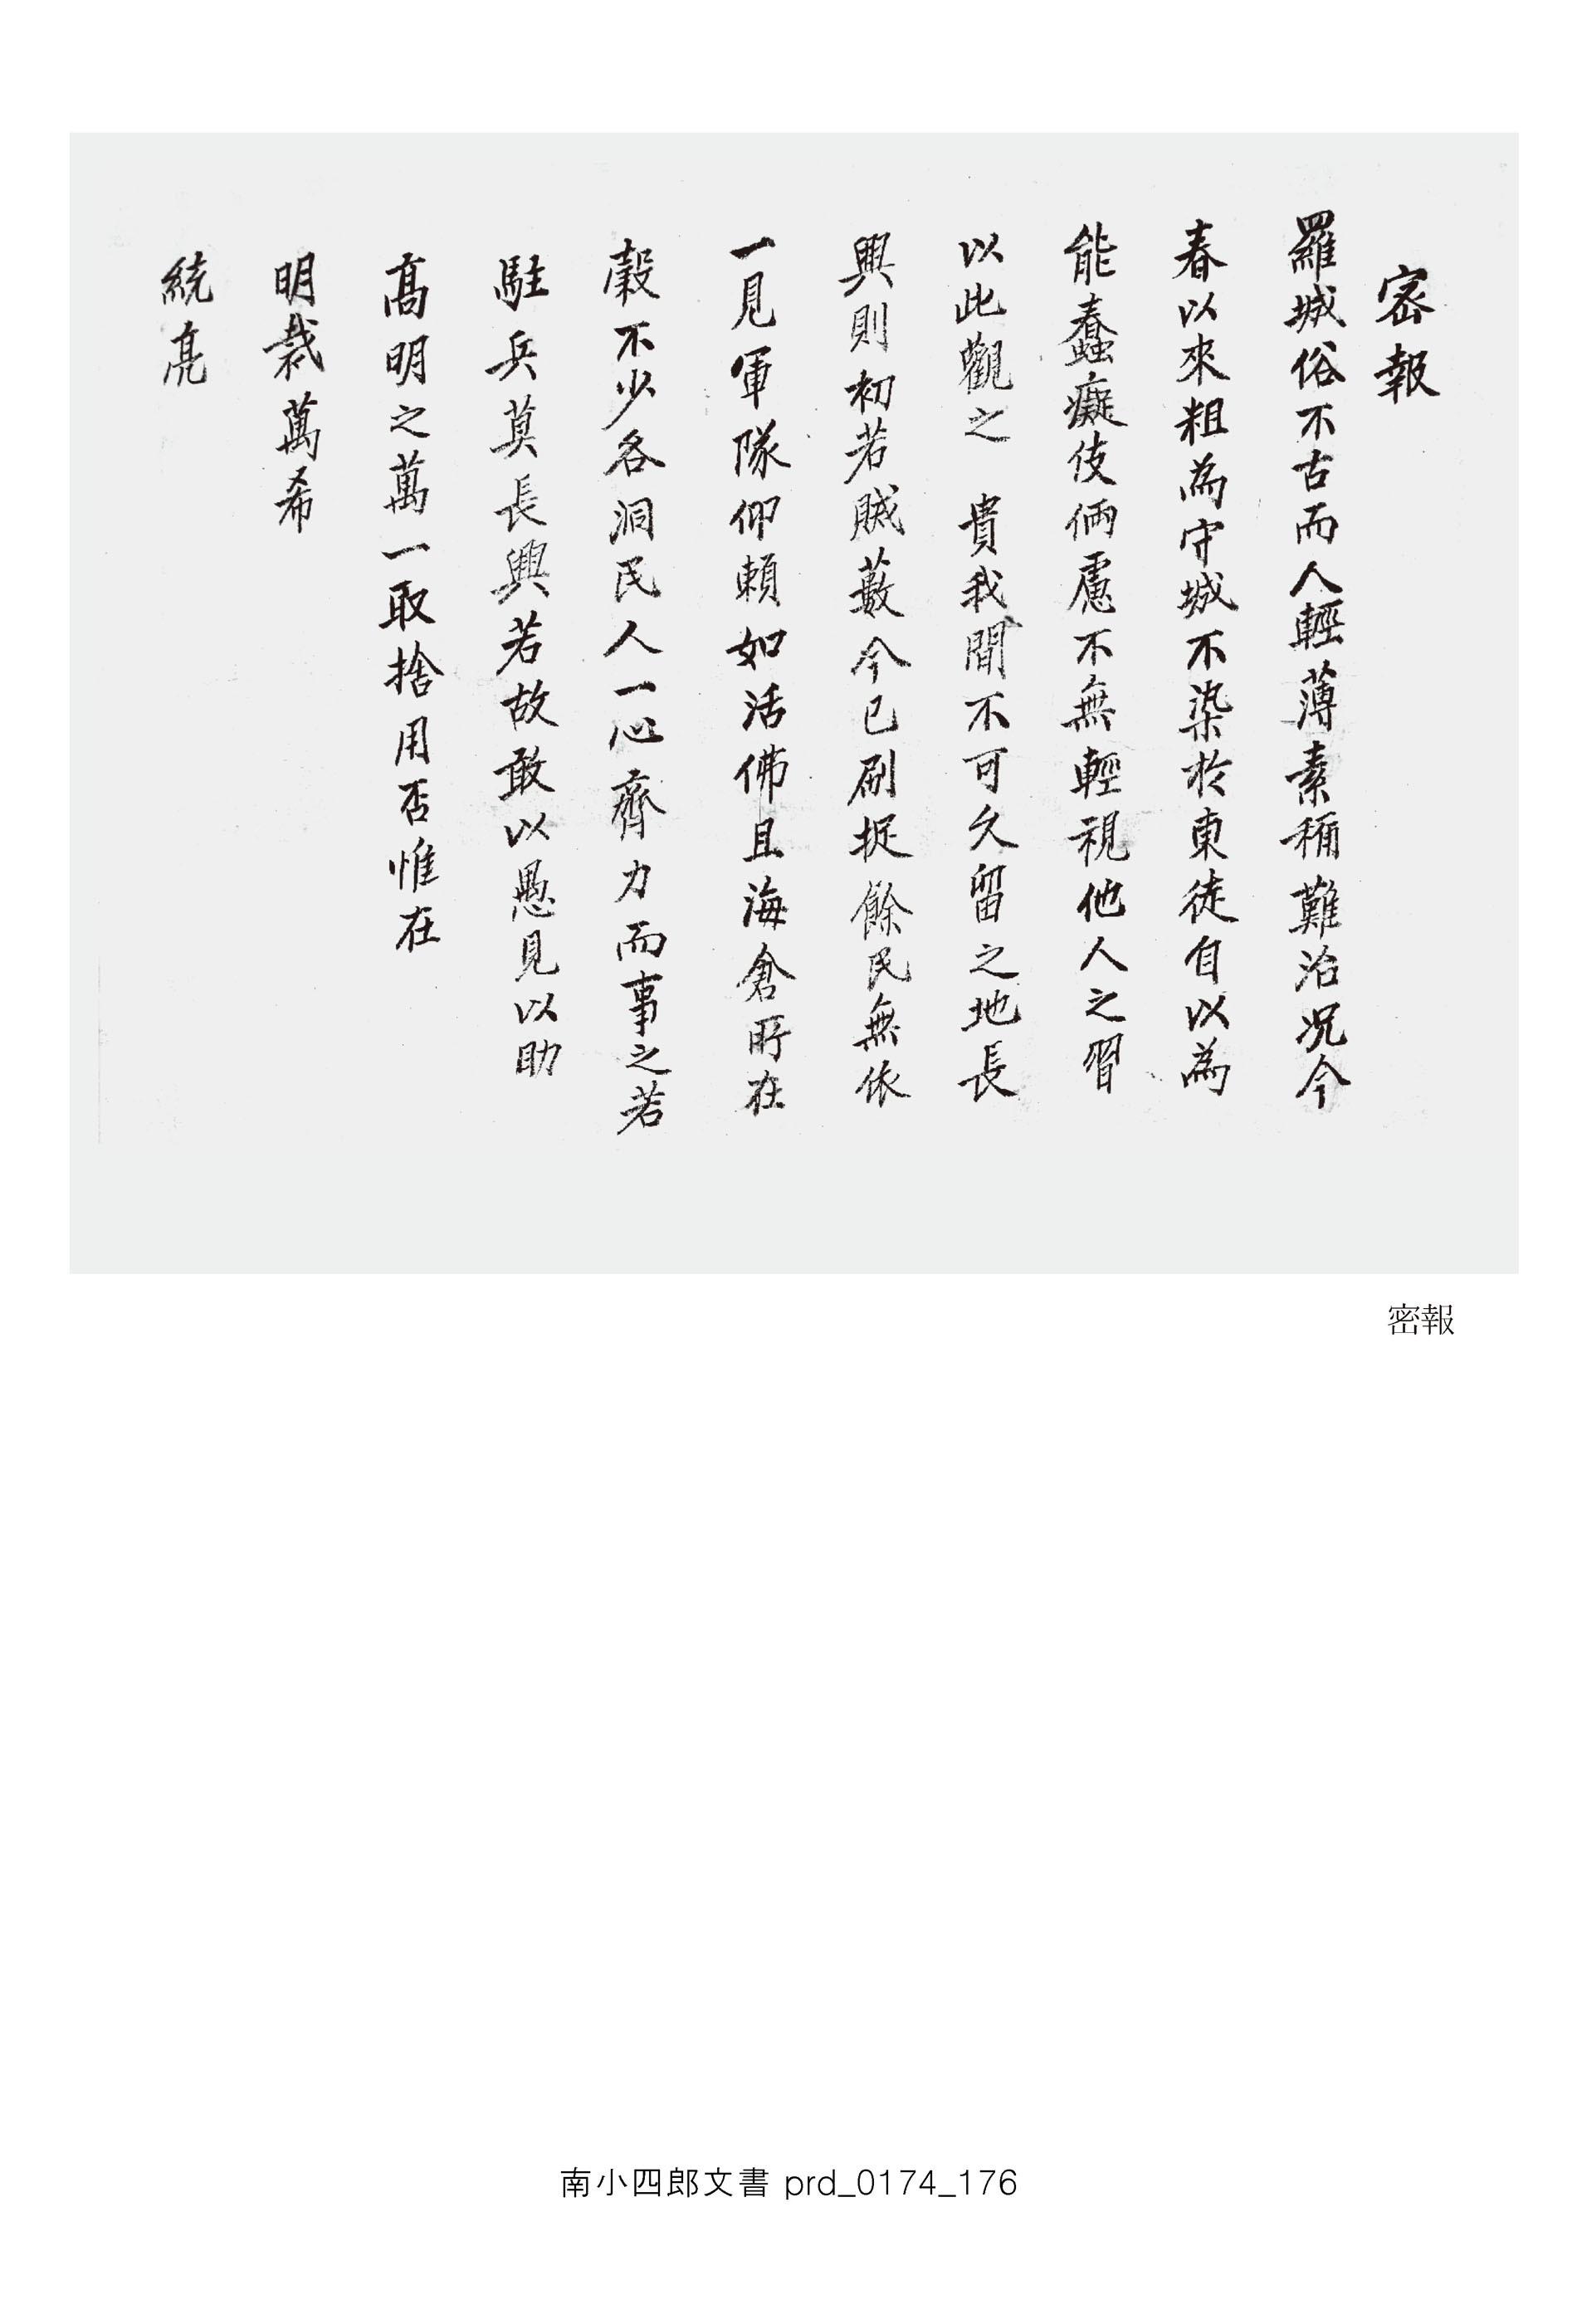 密報
羅城俗不古而人輕薄素稱難治况今
春以來粗為守城不染於東徒自以為
能蠢癡伎倆慮不無輕視他人之習
以此觀之　貴我間不可久留之地長
興則初若賊藪今已刷捉餘民無依
一見軍隊仰賴如活佛且海倉所在
穀不少各洞民人一心齊力而事之若
駐兵莫長興若故敢以愚見以助
高明之萬一取捨用否惟在
明裁萬希
統亮
密報
南小四郎文書 prd_0174_176